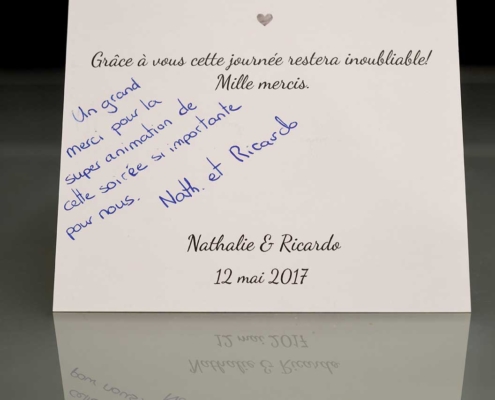 Grâce à vous cette journée restera inoubliable!
Mille mercis.
Un grand
merci pour la
super animation de
cette soirée si importante
pour nous.
Nath. et Ricardo
Nathalie & Ricardo
12 mai 2017
12 mai 2017
Nathalie & Ricardo
pour nous.